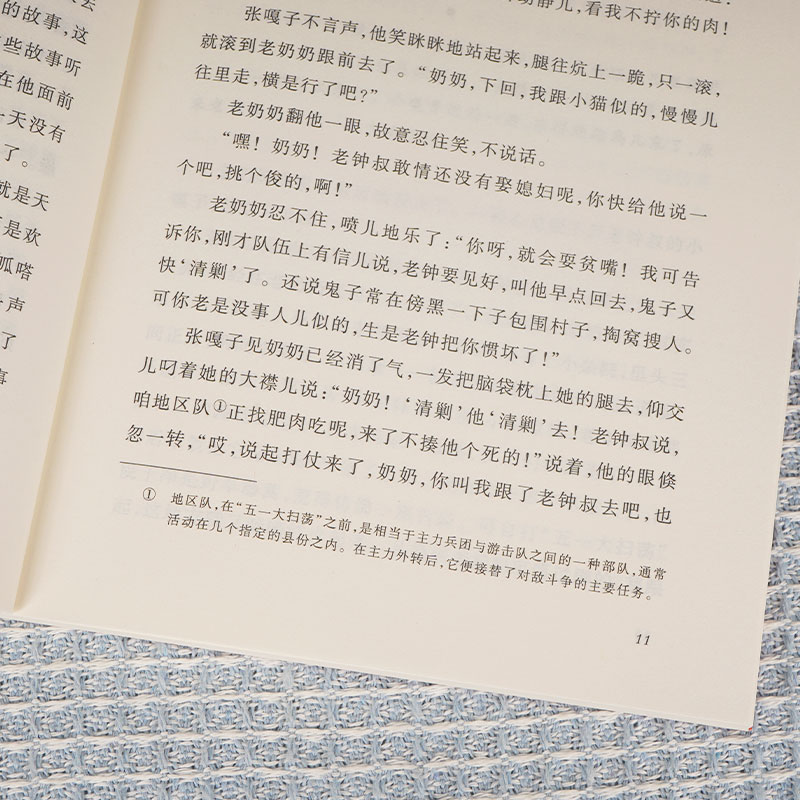 去
的故事，这
些故事听
在他面前
一天没有
了。
就是天
是欢
呱嗒
声
了
静儿，看我不拧你的肉！
张嘎子不言声，他笑眯眯地站起来，腿往炕上一跪，只一滚，
就滚到老奶奶跟前去了。“奶奶，下回，我跟小猫似的，慢慢儿
往里走，横是行了吧？”
老奶奶翻他一眼，故意忍住笑，不说话。
“嘿！奶奶！老钟叔敢情还没有娶媳妇呢，你快给他说一
个吧，挑个俊的，啊！”
老奶奶忍不住，喷儿地乐了：“你呀，就会耍贫嘴！我可告
诉你，刚才队伍上有信儿说，老钟要见好，叫他早点回去，鬼子又
快‘清剿’了。还说鬼子常在傍黑一下子包围村子，掏窝搜人。
可你老是没事人儿似的，生是老钟把你惯坏了！”
张嘎子见奶奶已经消了气，一发把脑袋枕上她的腿去，仰交
儿叼着她的大襟儿说：“奶奶！‘清剿’他‘清剿’去！老钟叔说，
咱地区队①正找肥肉吃呢，来了不揍他个死的！”说着，他的眼倏
忽一转，“哎，说起打仗来了，奶奶，你叫我跟了老钟叔去吧，也
① 地区队，在“五一大扫荡”之前，是相当于主力兵团与游击队之间的一种部队，通常
活动在几个指定的县份之内。在主力外转后，它便接替了对敌斗争的主要任务。
11